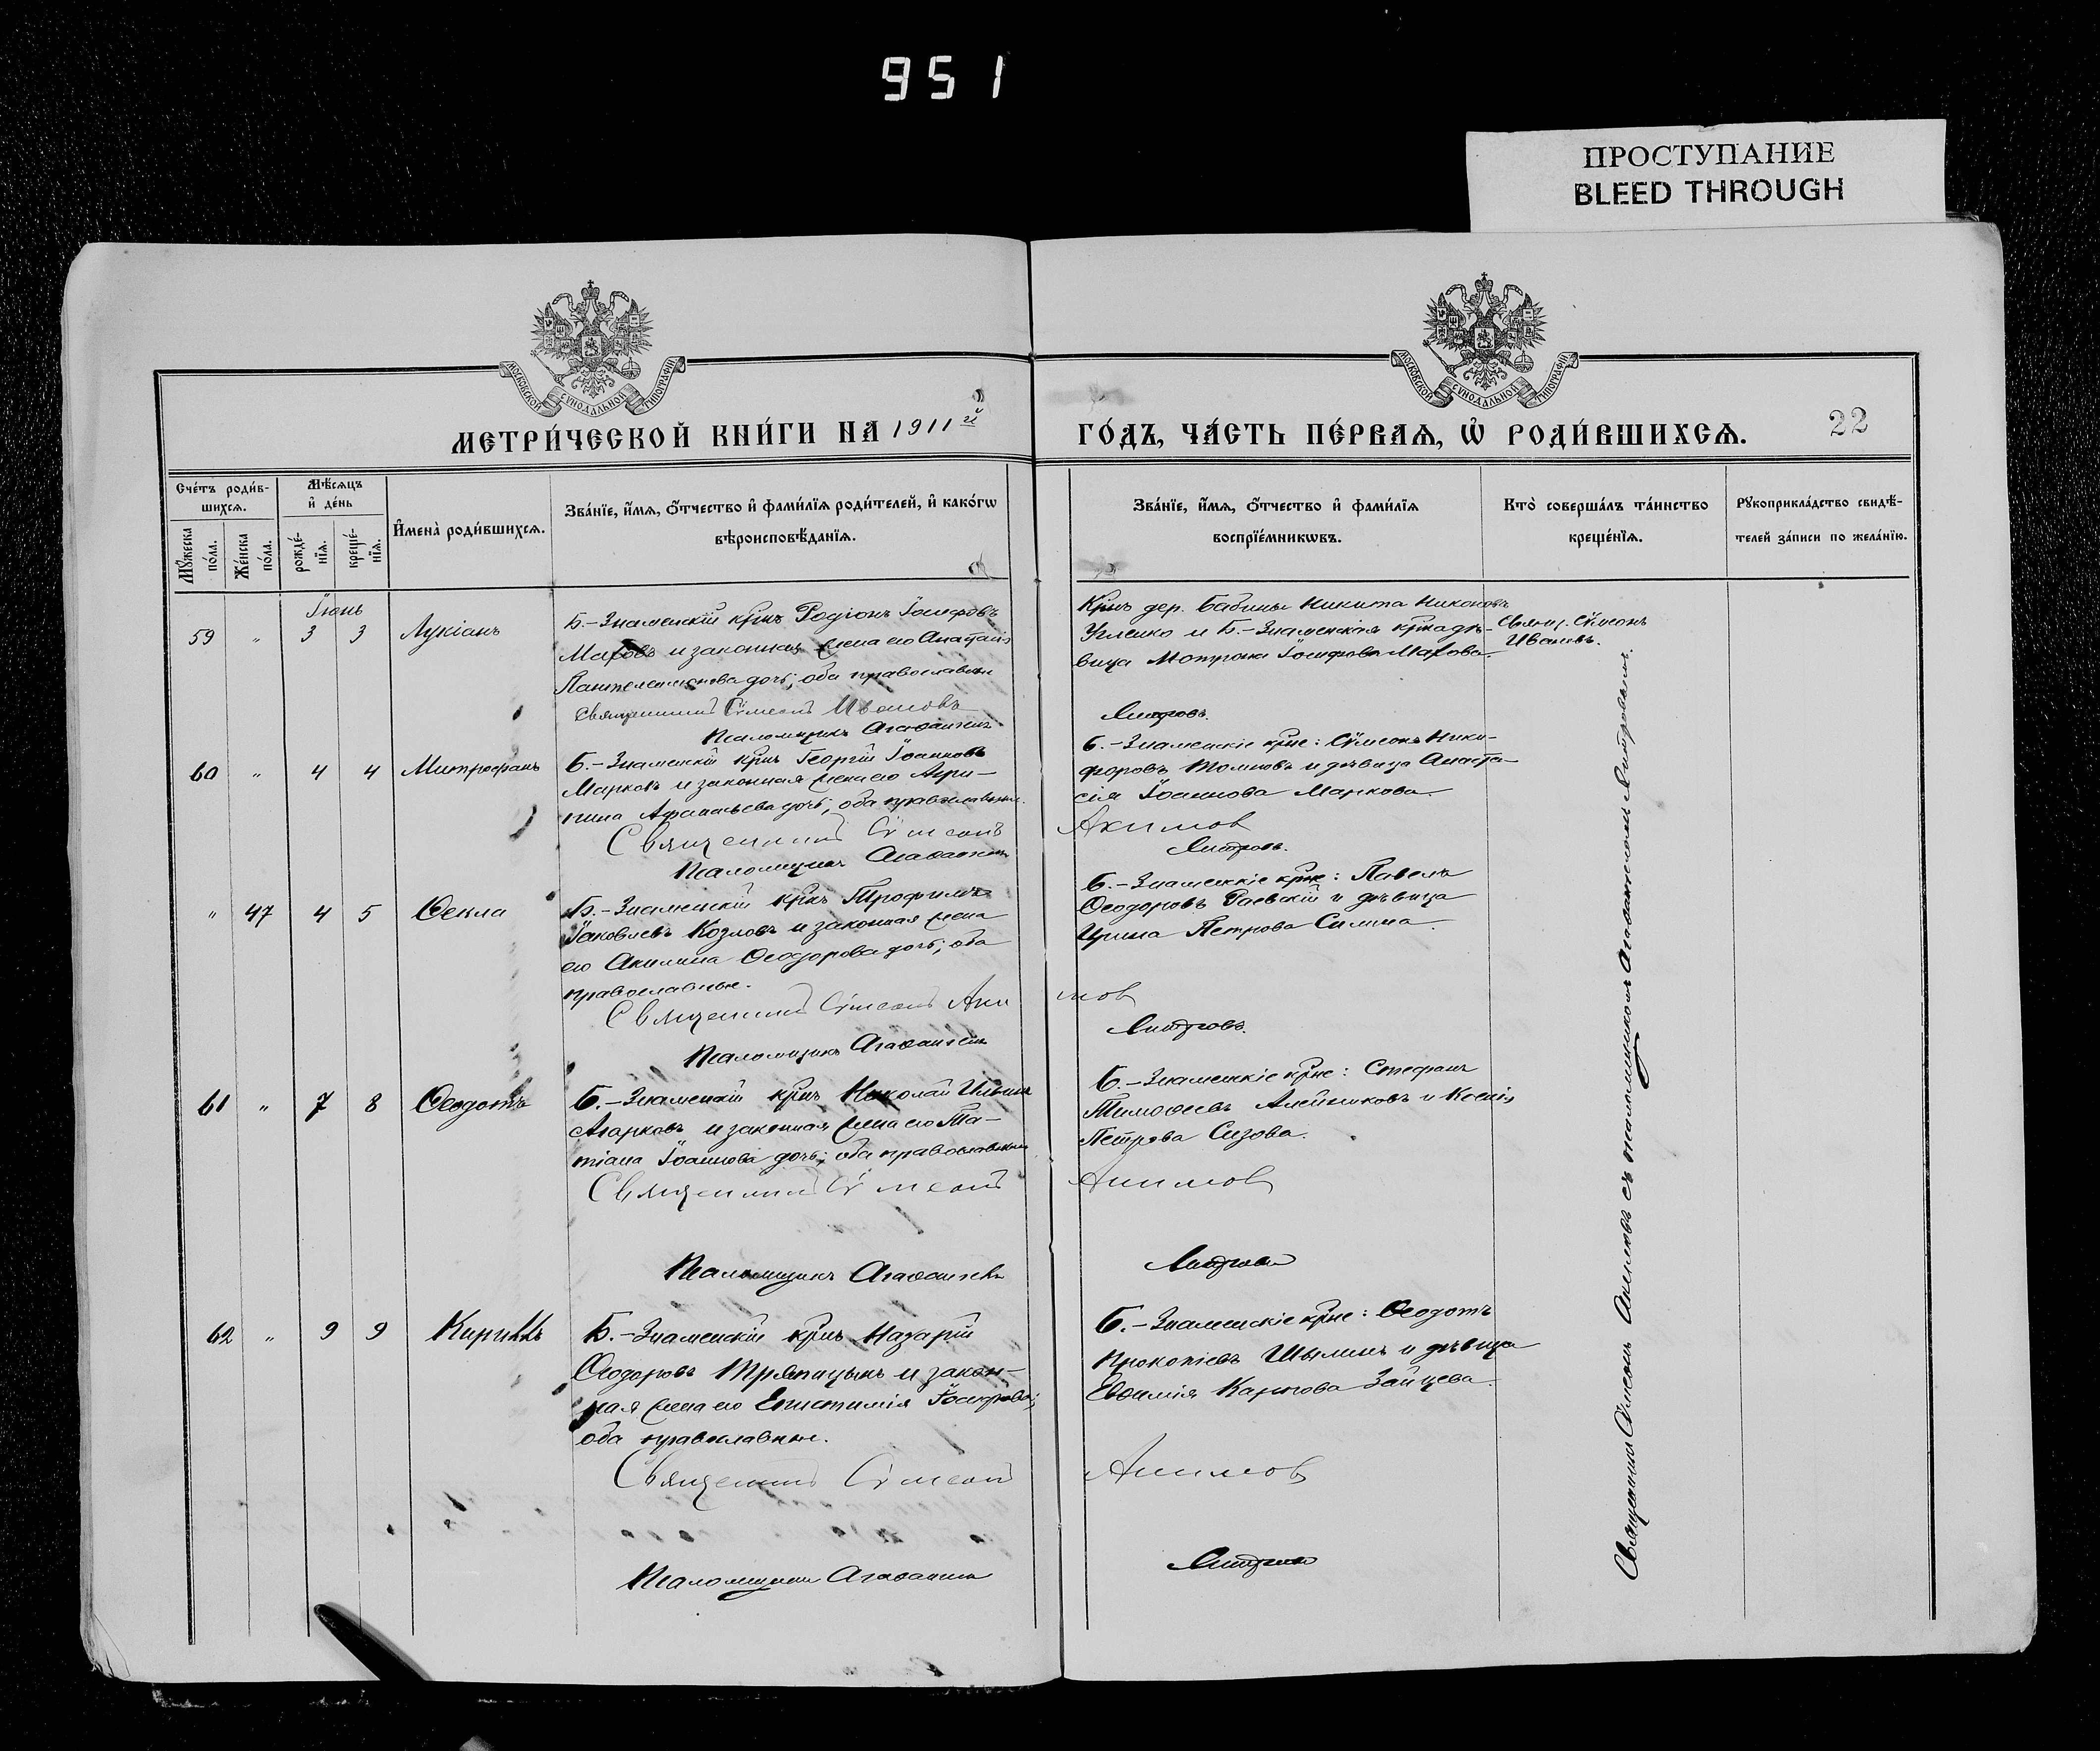 951
ПРОСТУПАНИЕ
BLEED THROUGH
МОСКОВСКОЙ СѴНОДАЛЬНОЙ ТИПОГРАФІИ
МОСКОВСКОЙ СѴНОДАЛЬНОЙ ТИПОГРАФІИ
МЕТРИ́ЧЕСКОЙ КНИ́ГИ НА 1911й
ГО́ДЪ, ЧА́СТЬ ПЕ́РВАѦ, Ѡ҆ РОДИ́ВШИХСѦ.
22
Сче́тъ роди́в-
шихсѧ.
Мꙋ́жеска
по́ла.
Же́нска
по́ла.
Мѣ́сѧцъ
и҆ де́нь
рожде́-
нїѧ.
креще́-
нїѧ.
И҆мена̀ роди́вшихсѧ.
Зва́нїе, и҆́мѧ, ѻ҆́тчество и҆ фами́лїѧ роди́телей, и҆ како́гѡ
вѣроисповѣ́данїѧ.
Зва́нїе, и҆́мѧ, ѻ҆́тчество и҆ фами́лїѧ
воспрїе́мникѡвъ.
Кто̀ соверша́лъ та́инство
креще́нїѧ.
Рꙋкоприкла́дство свидѣ́-
телей за́писи по жела́нїю.
Іюнь
59 " 3 3 Лукіанъ
Б.-Знаменскій крнъ Родіонъ Іосифовъ
Маховъ и законная жена его Анастасія
Пантелеимонова дочь; оба православные
Священникъ Сѵмеонъ Ивановъ
Псаломщикъ Агаѳангелъ
Крнъ дер. Бабины Никита Никоновъ
и Б.-Знаменская крнка дѣ-
вица Матрона Іосифова Махова.
Дмитровъ.
Свящ. Сѵмеонъ
Ивановъ.
60 " 4 4 Митрофанъ
Б.-Знаменскій крнъ Георгій Іоанновъ
Марковъ и законная жена его Агри-
пина Афанасьева дочь; оба православные.
Священникъ Сѵмеонъ
Псаломщикъ Агаѳангелъ
Б.-Знаменскіе крне: Сѵмеонъ Ники-
форовъ и дѣвица Анаста-
сія Іоаннова Маркова.
Акимов
Дмитровъ.
" 47 4 5 Ѳекла
Б.-Знаменскій крнъ Трофимъ
Іаковлевъ Козловъ и законная жена
его Акилина Ѳеодорова дочь; оба
православные.
Священникъ Сѵмеонъ Аки
Псаломщикъ Агаѳангелъ
Б.-Знаменскіе крне: Павелъ
Ѳеодоровъ Раевскій и дѣвица
Ирина Петрова Силина.
мов
Дмитровъ.
61 " 7 8 Ѳеодотъ
Б.-Знаменскій крнъ Николай Ильинъ
Агарковъ и законная жена его Та-
тіана Іоаннова дочь; оба православные
Священникъ Сѵмеонъ
Псаломщикъ Агаѳангелъ
Б.-Знаменскіе крне: Стефанъ
Тимоѳеевъ Алейниковъ и Ксенія
Петрова Сизова.
Акимов
Дмитровъ
62 " 9 9 Кириллъ
Б.-Знаменскій крнъ Назарій
Ѳеодоровъ Тряпицынъ и закон-
ная жена его Епистимія
оба православные.
Священникъ Сѵмеонъ
Псаломщикъ Агаѳангелъ
Б.-Знаменскіе крне: Ѳеодотъ
Прокопіевъ и дѣвица
Евѳимія Карпова Зайцева.
Акимов
Дмитровъ
Священникъ Сѵмеонъ Акимовъ съ псаломщикомъ Агаѳангеломъ Дмитровымъ.